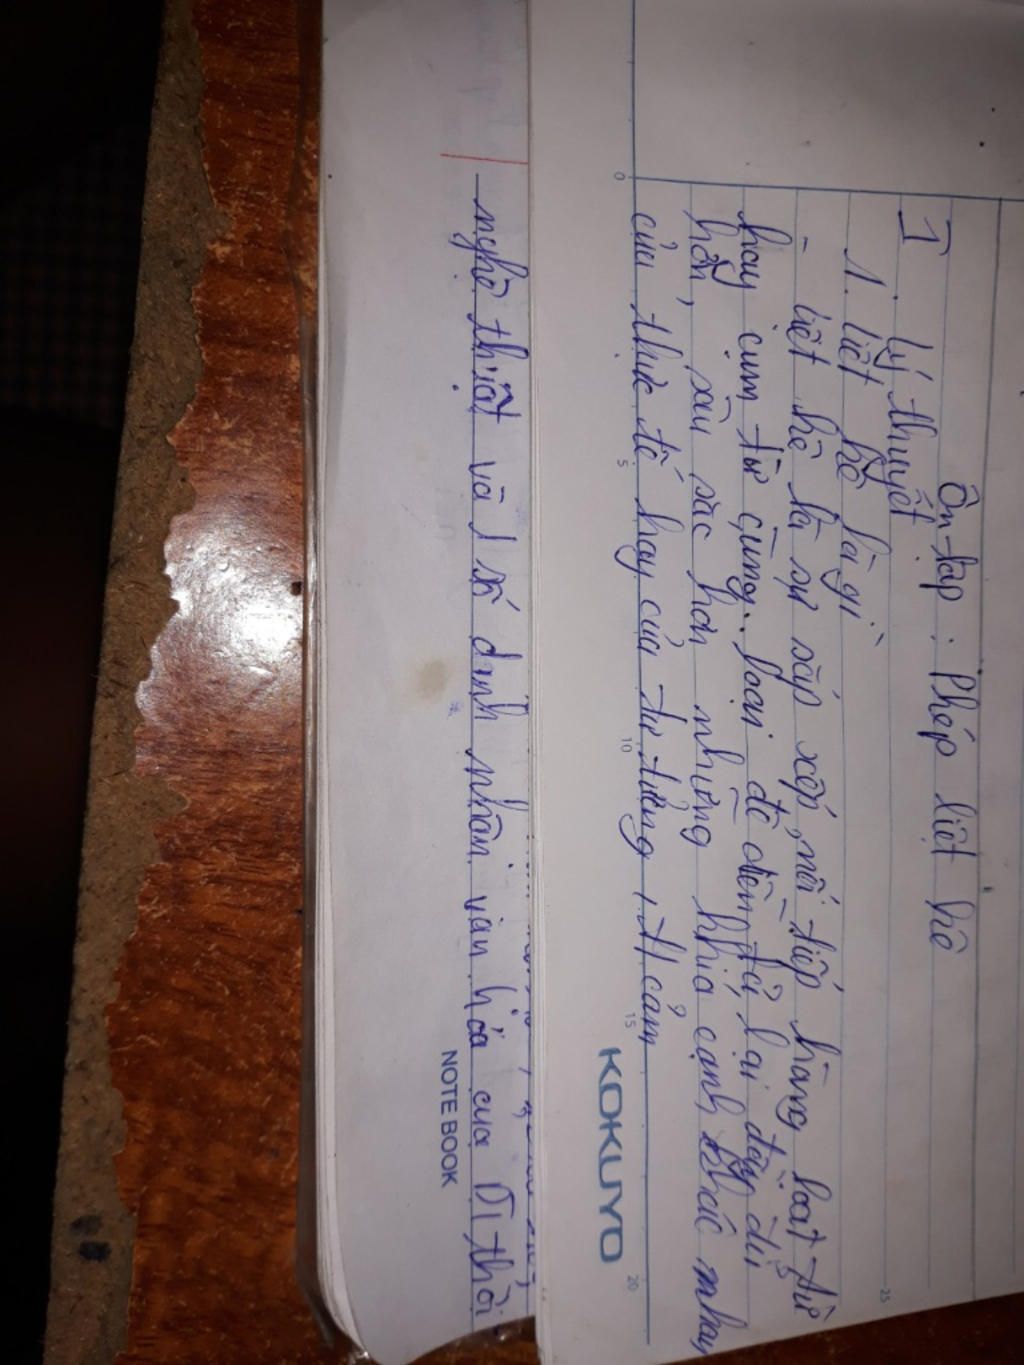 Ôn tập : Phép liệt kê
I. Lý thuyết
1. liệt kê là gì
- liệt kê là sự sắp xếp, nối tiếp hàng loạt từ
hay cụm từ cùng loại để diễn tả lại đầy đủ
hơn, sâu sắc hơn những khía cạnh khác nhau
của thực tế hay của tư tưởng, t/cảm
0 5 10 15 20
25
KOKUYO
nghệ thuật và 1 số danh nhân văn hóa của
NOTE BOOK